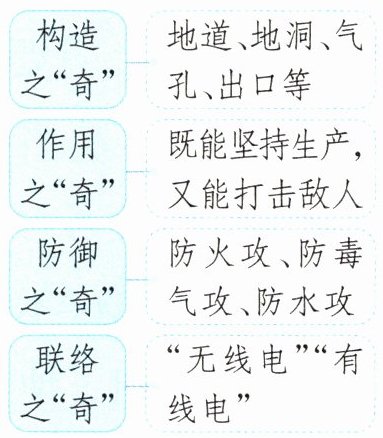 构造
之“奇”
地道、地洞、气
孔、出口等
作用
之“奇”
既能坚持生产，
又能打击敌人
防御
之“奇”
防火攻、防毒
气攻、防水攻
联络
之“奇”
“无线电”“有
线电”